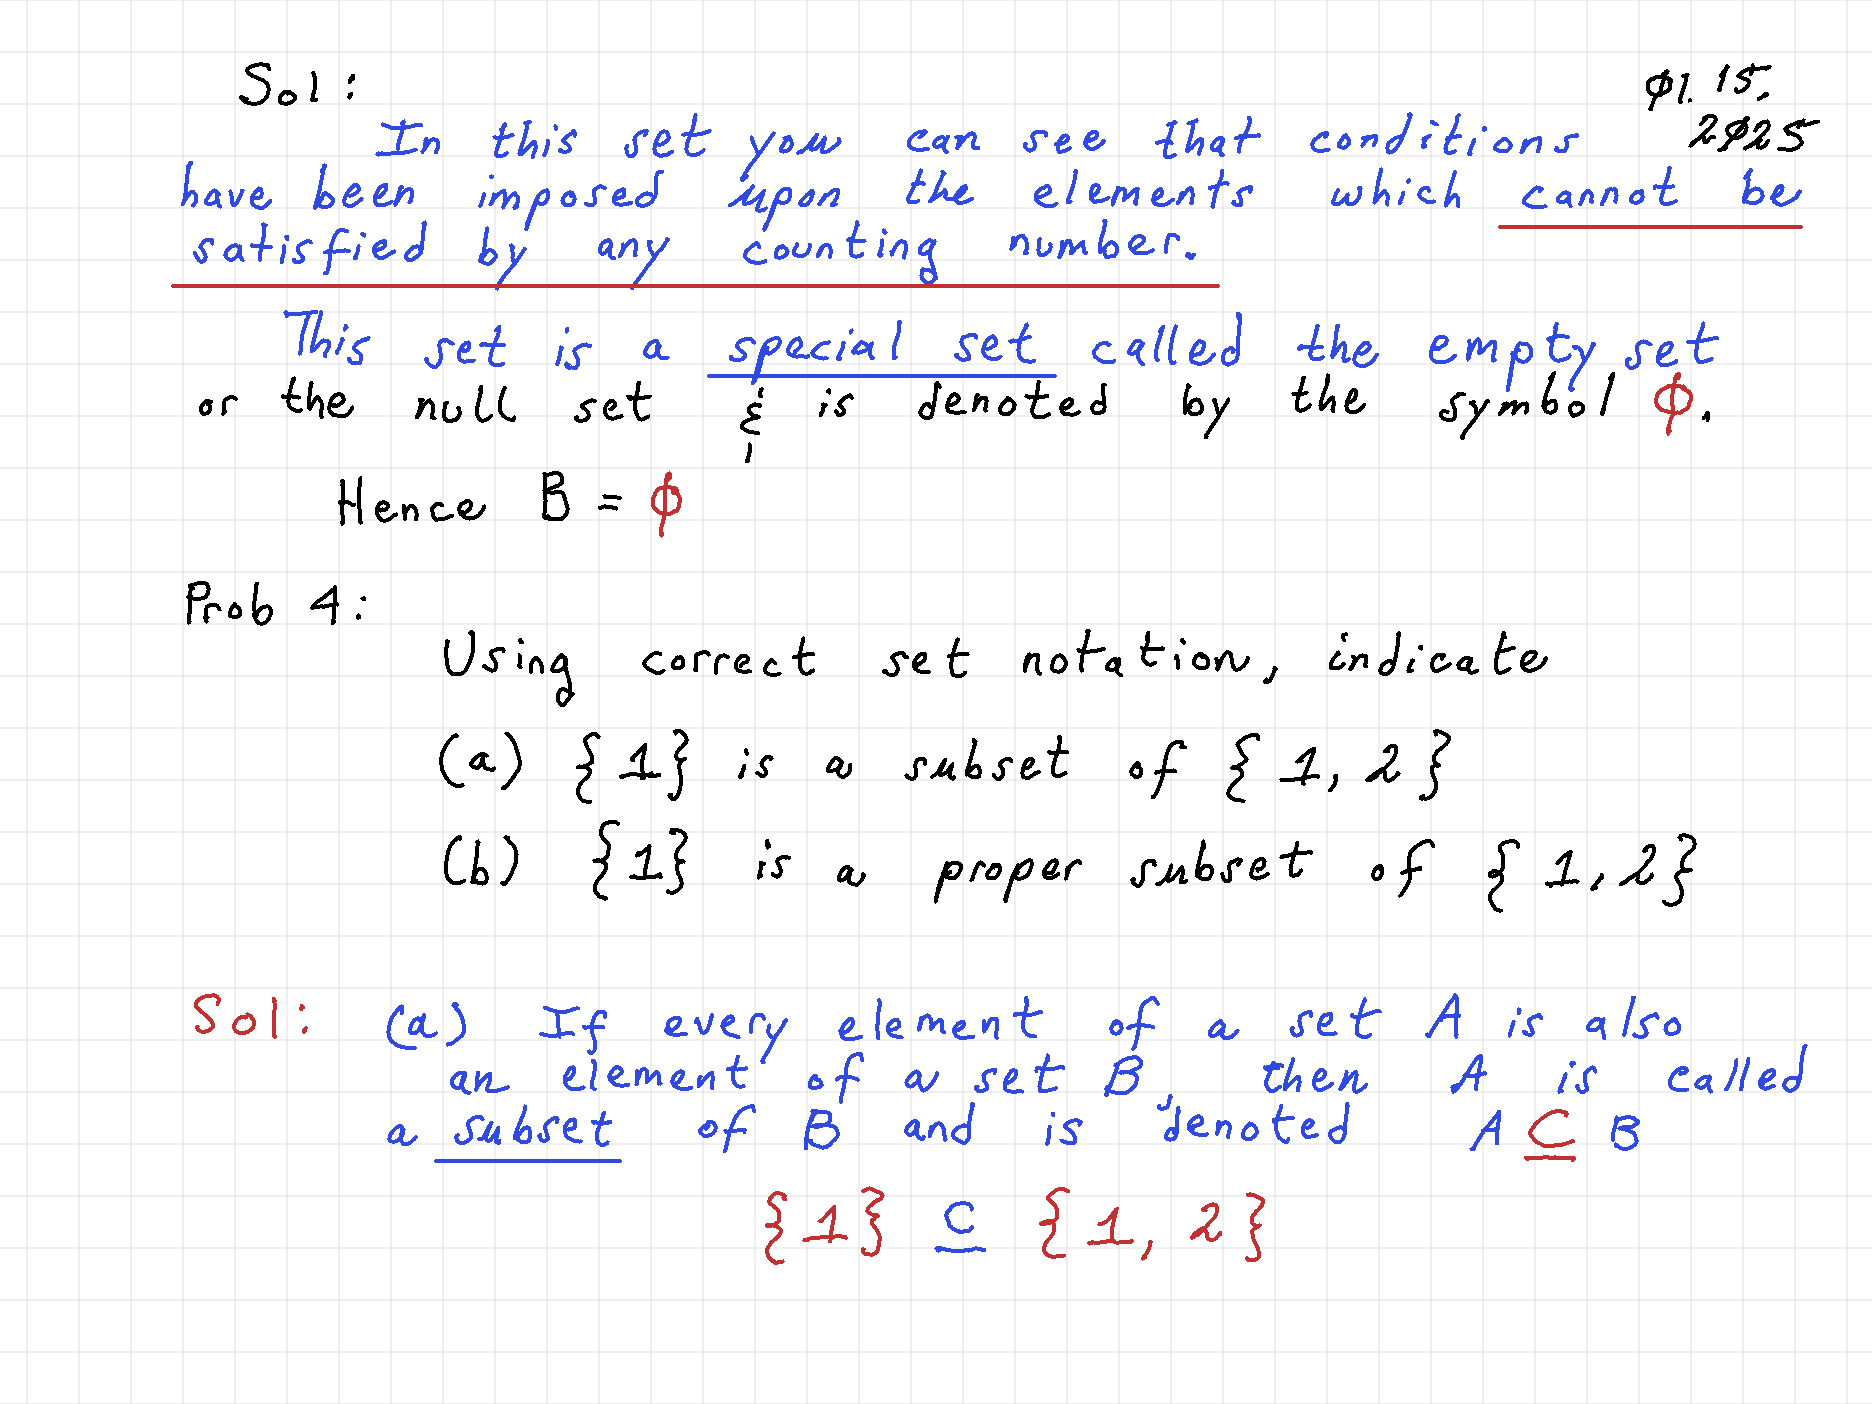 Sol:
Ø1. 15.
2Ø25
In this set you can see that conditions
have been imposed upon the elements which cannot be
satisfied by any counting number.
This set is a special set called the empty set
or the null set & is denoted by the symbol ϕ.
Hence B = ϕ
Prob 4:
Using correct set notation, indicate
(a) {1} is a subset of {1, 2}
(b) {1} is a proper subset of {1, 2}
Sol: (a) If every element of a set A is also
an element of a set B, then A is called
a subset of B and is denoted A ⊆ B
{1} ⊆ {1, 2}